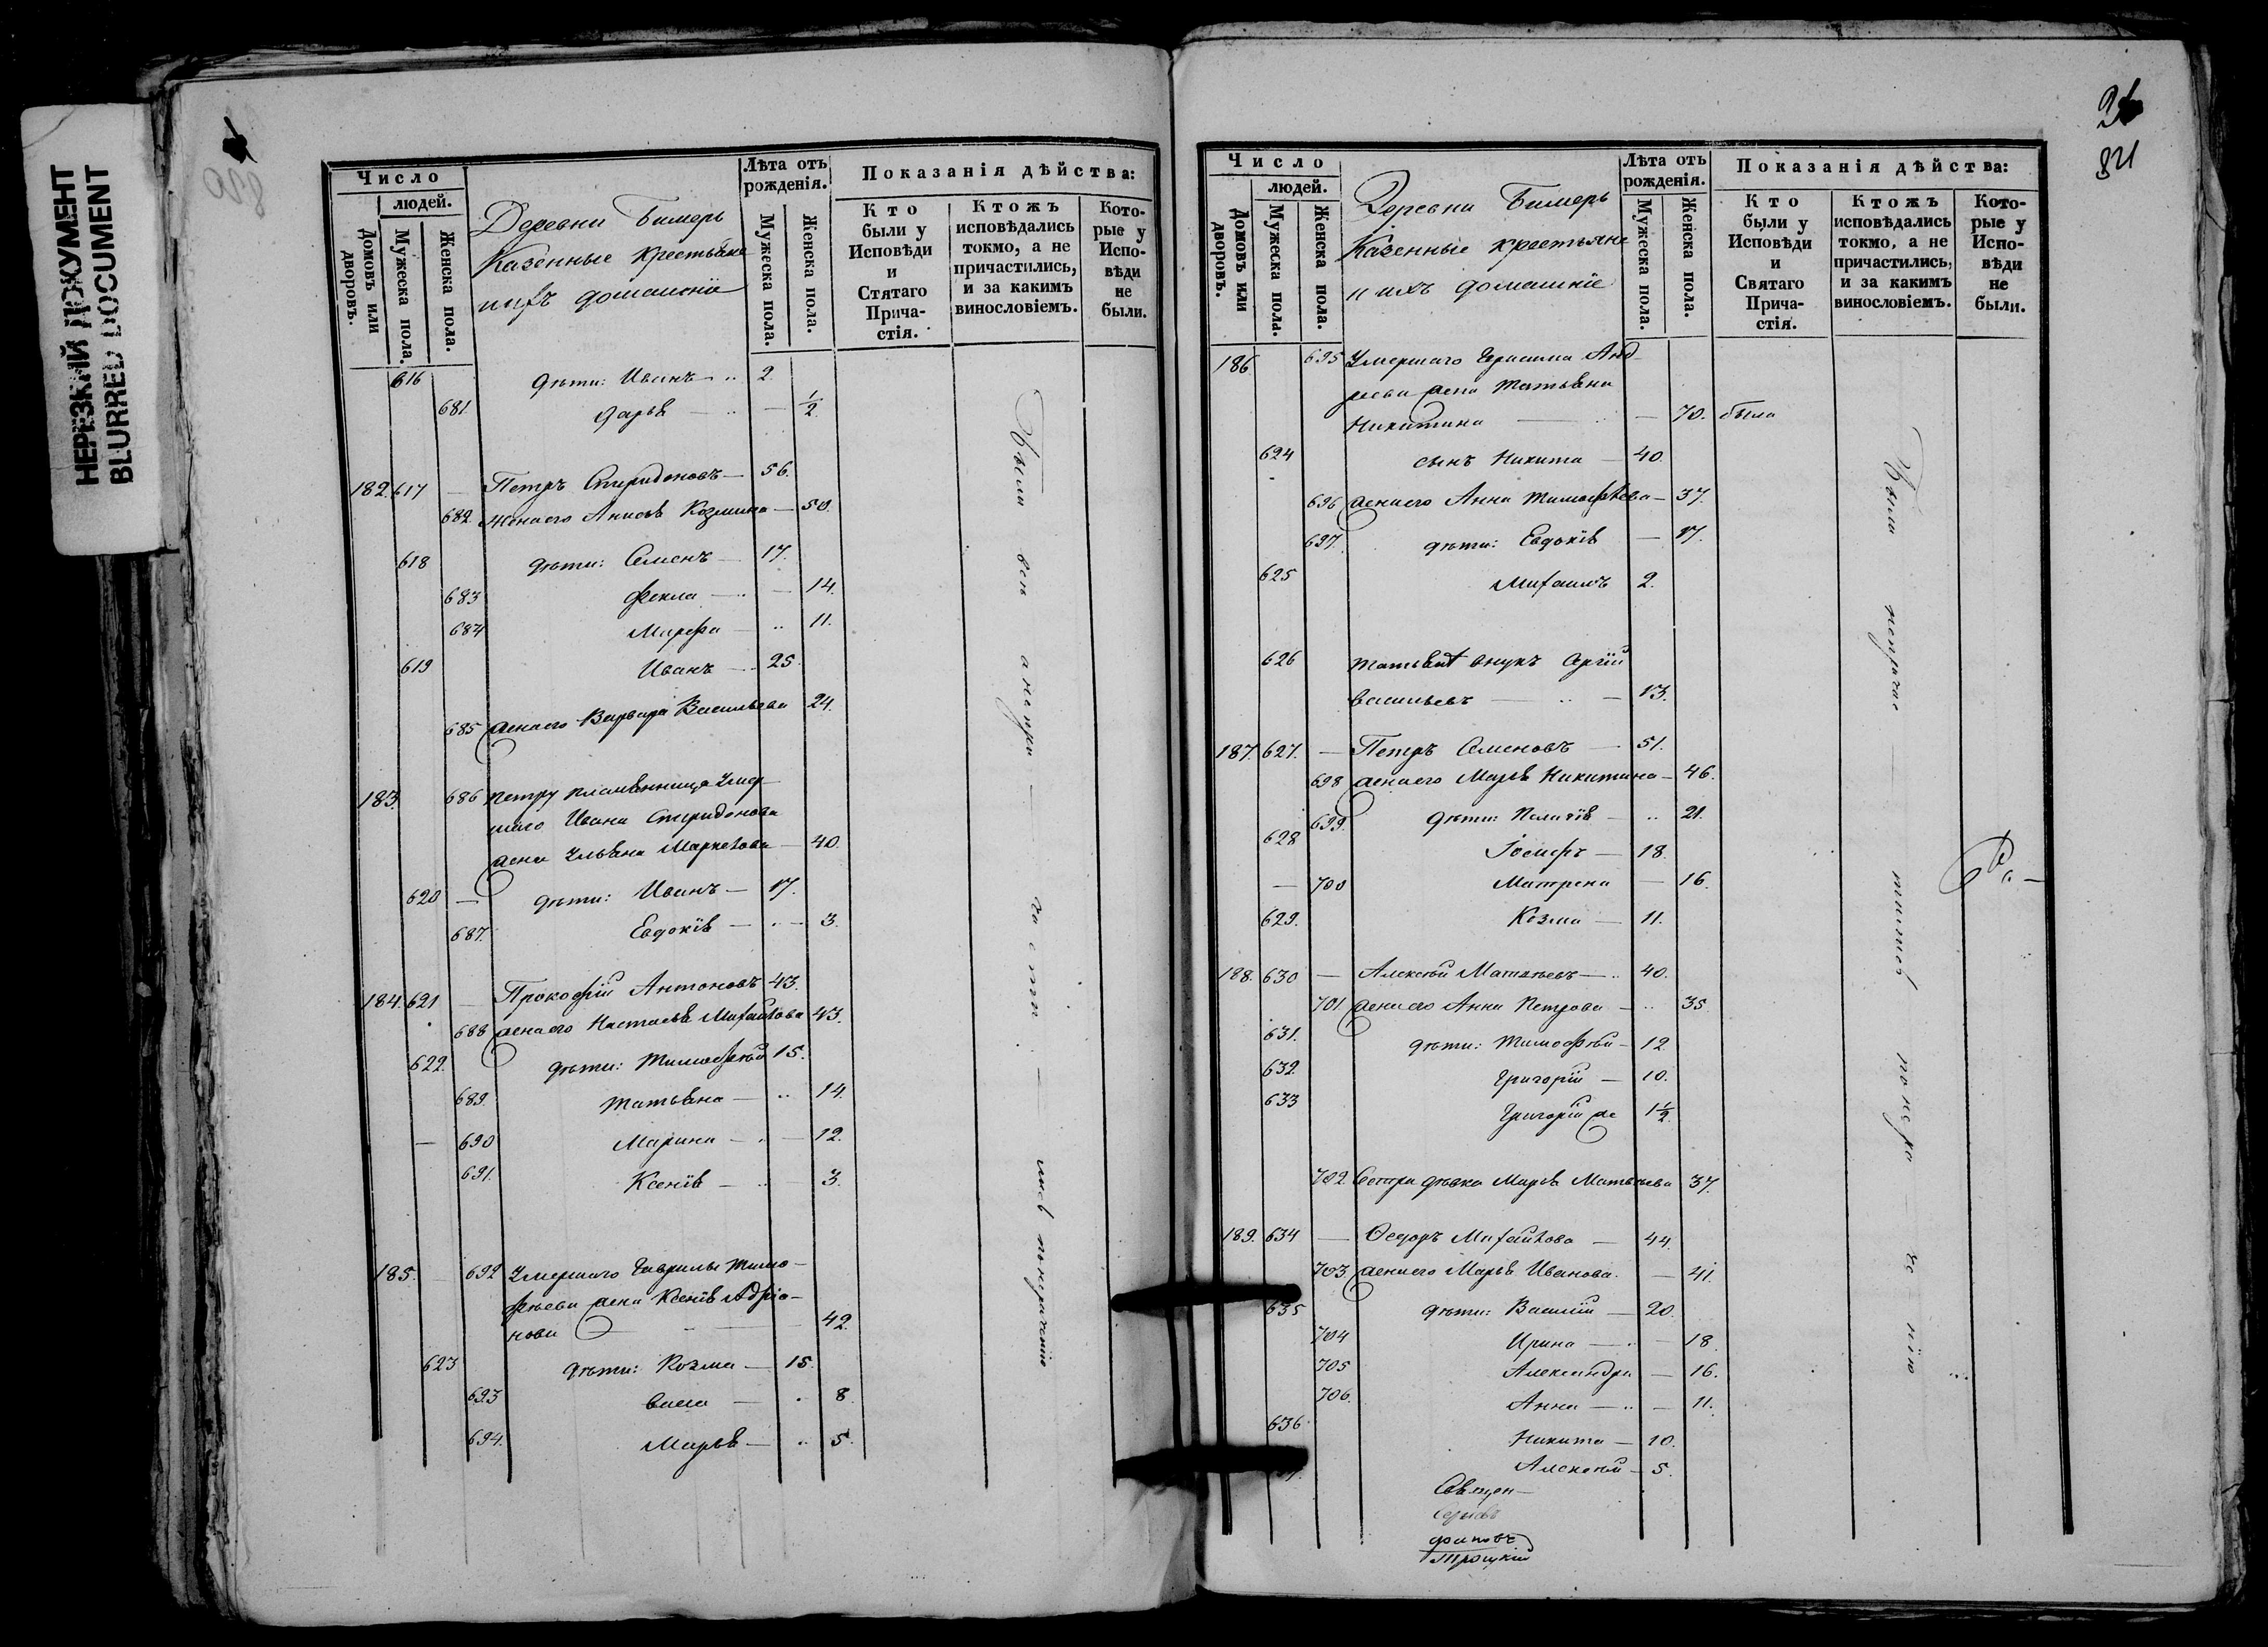 НЕРЕЗКИЙ ДОКУМЕНТ
BLURRED DOCUMENT
Число
людей.
Домовъ или дворовъ.
Мужеска пола.
Женска пола.
Деревни Бимерь
Казенные крестьяне
ихъ домашніе
Лѣта отъ рожденія.
Мужеска пола.
Женска пола.
Показанія дѣйства:
Кто были у Исповѣди и Стятаго Прича-стія.
Ктожъ исповѣдались токмо, а не причастились, и за какимъ винословіемъ.
Кото-рые у Испо-вѣди не были.
616 дѣти: Иванъ 2.
681. Дарья ½
182. 617 — Петръ Спиридоновъ — 56.
682. жена его Анисья Козмина — 50.
618 дѣти: Семенъ — 17.
683 Фекла — 14.
684 Марфа — 11.
619 Иванъ — 25.
685 жена его Варвара Васильева 24.
183. 686 Петру племянница Умер-
шаго Ивана Спиридонова
жена Ульяна Маркелова — 40.
620 — дѣти: Иванъ — 17.
687. Евдокія — 3.
184. 621 — Прокофій Антоновъ 43.
688 жена его Настасья Михайлова 43.
622. дѣти: Тимофѣй 15.
689. Татьяна — 14.
— 690 Марина — 12.
691. Ксенія — 3.
185. 692 Умершаго Гаврилы Тимо-
фѣева жена Ксенія Адріа-
нова 42.
623 дѣти: Козма — 15.
693 8.
694. Марья — 5.
Были вси а непри — ча сти — лись по нераченію
84
Число
людей.
Домовъ или дворовъ.
Мужеска пола.
Женска пола.
Деревни Бимерь
Казенные крестьяне
и ихъ домашніе
Лѣта отъ рожденія.
Мужеска пола.
Женска пола.
Показанія дѣйства:
Кто были у Исповѣди и Святаго Прича-стія.
Ктожъ исповѣдались токмо, а не причастились, и за какимъ винословіемъ.
Кото-рые у Испо-вѣди не были.
186 695 Умершаго Герасима Анд-
реева жена Татьяна
Никитина — 70. была
624 сынъ Никита — 40.
696 жена его Анна Тимофѣева — 37.
697. дѣти: Евдокія — 17.
625 Михаилъ 2.
626 Татьяны внукъ Сергій
Васильевъ — 13.
187. 627. — Петръ Семеновъ — 51.
698 жена его Марья Никитина — 46.
699. дѣти: Пелагія — 21.
628 Іосифъ — 18.
— 700 Матрена — 16.
629. Козма — 11.
188. 630 — Алексѣй Матвѣевъ — 40.
701 жена его Анна Петрова — 35
631. дѣти: Тимофѣй — 12.
632. Григорій — 10.
633 Григорій же 1½.
702. Сестра дѣвка Марья Матвѣева 37.
189. 634 — Ѳедоръ Михайлова — 44.
703. жена его Марья Иванова. — 41.
635 дѣти: Василій — 20.
704 Ирина — 18.
705 Александра — 16.
706. Анна — 11.
636 Никита — 10.
Алексѣй — 5.
Были непричас — тились по нера — че — нію
Священ—
Троицкій